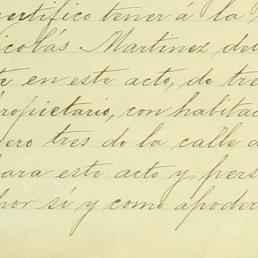 certifico tener á la
icolás Martinez del
en este acto, de tre
ropietario, con habitac
ero tres de la calle d
para este acto y pers
por sí y como apoder